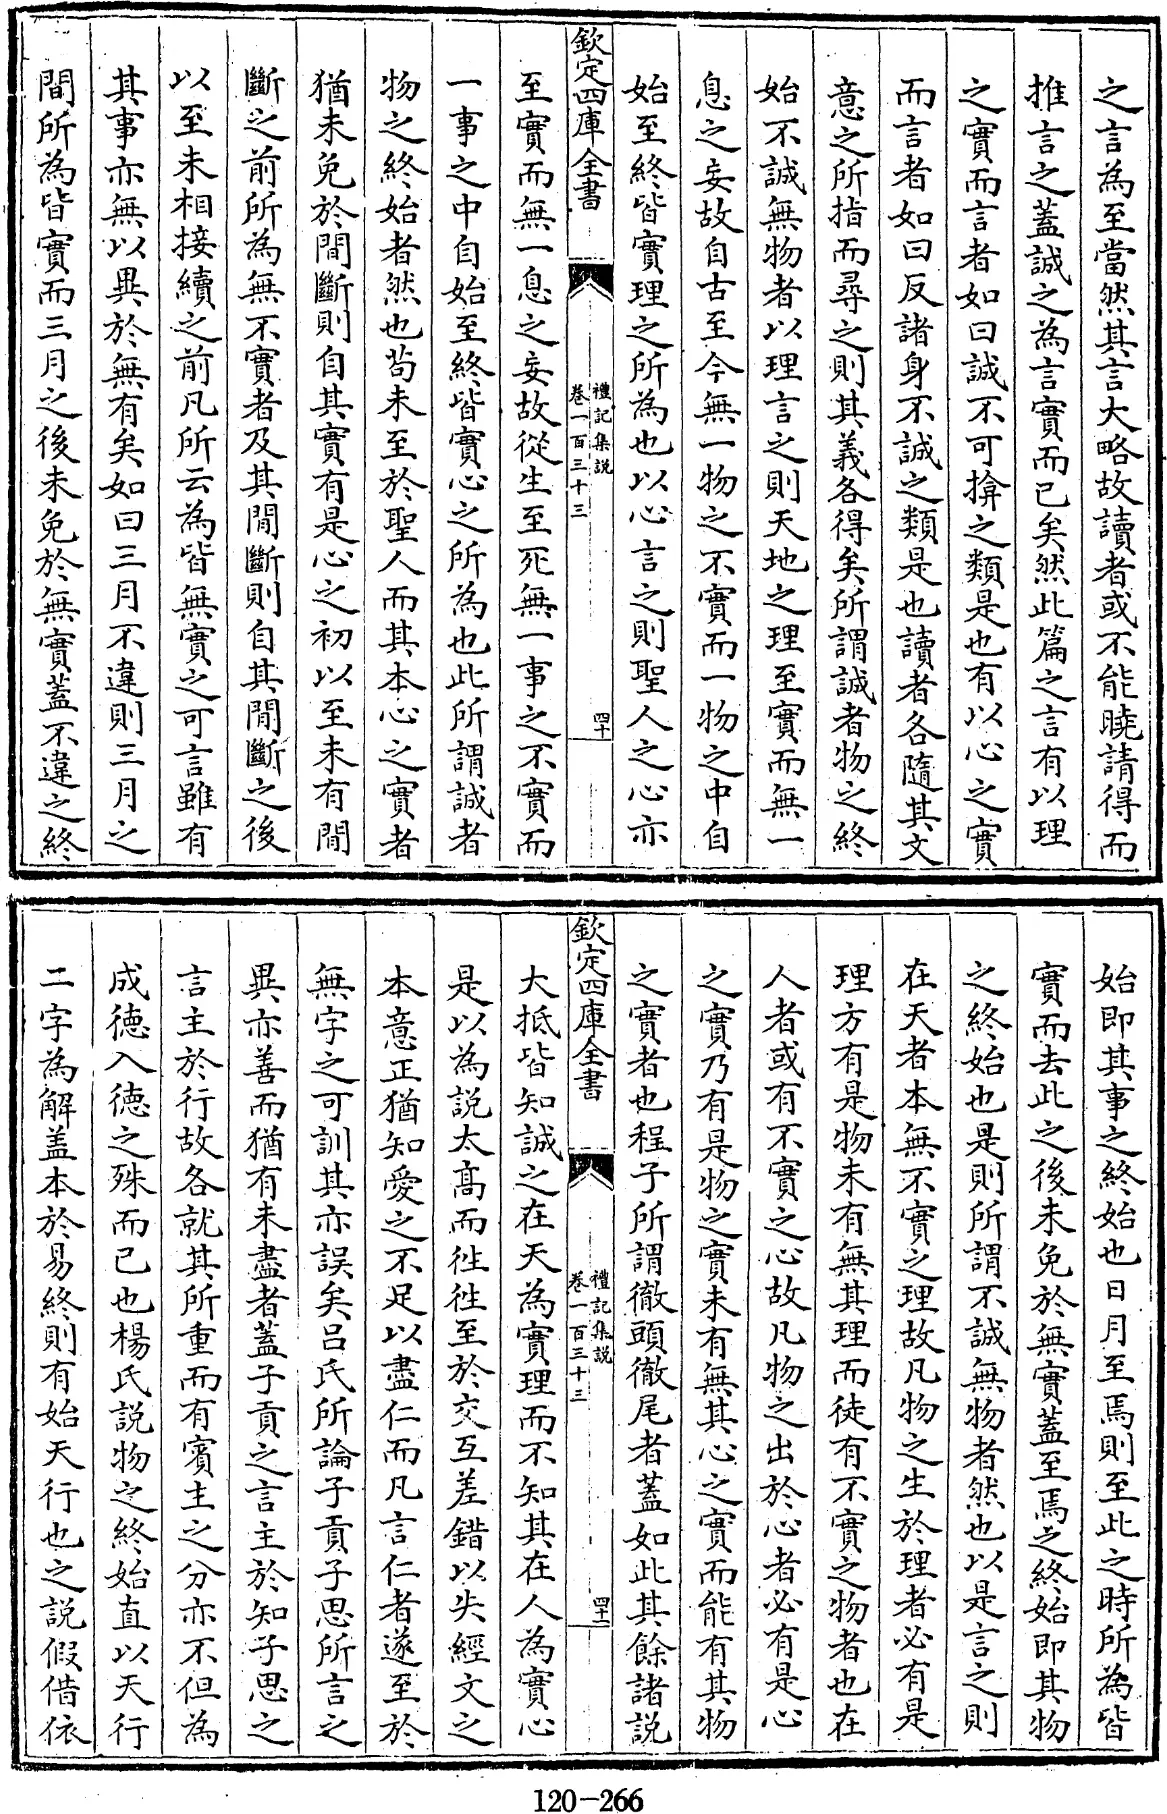 之言為至當然其言大略故讀者或不能曉請得而
推言之蓋誠之為言實而已矣然此篇之言有以理
之實而言者如曰誠不可揜之類是也有以心之實
而言者如曰反諸身不誠之類是也讀者各隨其文
意之所指而尋之則其義各得矣所謂誠者物之終
始不誠無物者以理言之則天地之理至實而無一
息之妄故自古至今無一物之不實而一物之中自
始至終皆實理之所為也以心言之則聖人之心亦
欽定四庫全書
禮記集説
卷一百三十三
四十
至實而無一息之妄故從生至死無一事之不實而
一事之中自始至終皆實心之所為也此所謂誠者
物之終始者然也茍未至於聖人而其本心之實者
猶未免於間斷則自其實有是心之初以至未有間
斷之前所為無不實者及其間斷則自其間斷之後
以至未相接續之前凡所云為皆無實之可言雖有
其事亦無以異於無有矣如曰三月不違則三月之
間所為皆實而三月之後未免於無實蓋不違之終
始即其事之終始也日月至焉則至此之時所為皆
實而去此之後未免於無實蓋至焉之終始即其物
之終始也是則所謂不誠無物者然也以是言之則
在天者本無不實之理故凡物之生於理者必有是
理方有是物未有無其理而徒有不實之物者也在
人者或有不實之心故凡物之出於心者必有是心
之實乃有是物之實未有無其心之實而能有其物
之實者也程子所謂徹頭徹尾者蓋如此其餘諸説
欽定四庫全書
禮記集説
卷一百三十三
四十一
大抵皆知誠之在天為實理而不知其在人為實心
是以為説太高而徃徃至於交互差錯以失經文之
本意正猶知愛之不足以盡仁而凡言仁者遂至於
無字之可訓其亦誤矣呂氏所論子貢子思所言之
異亦善而猶有未盡者蓋子貢之言主於知子思之
言主於行故各就其所重而有賓主之分亦不但為
成徳入徳之殊而已也楊氏説物之終始直以天行
二字為解盖本於易終則有始天行也之説假借依
120-266